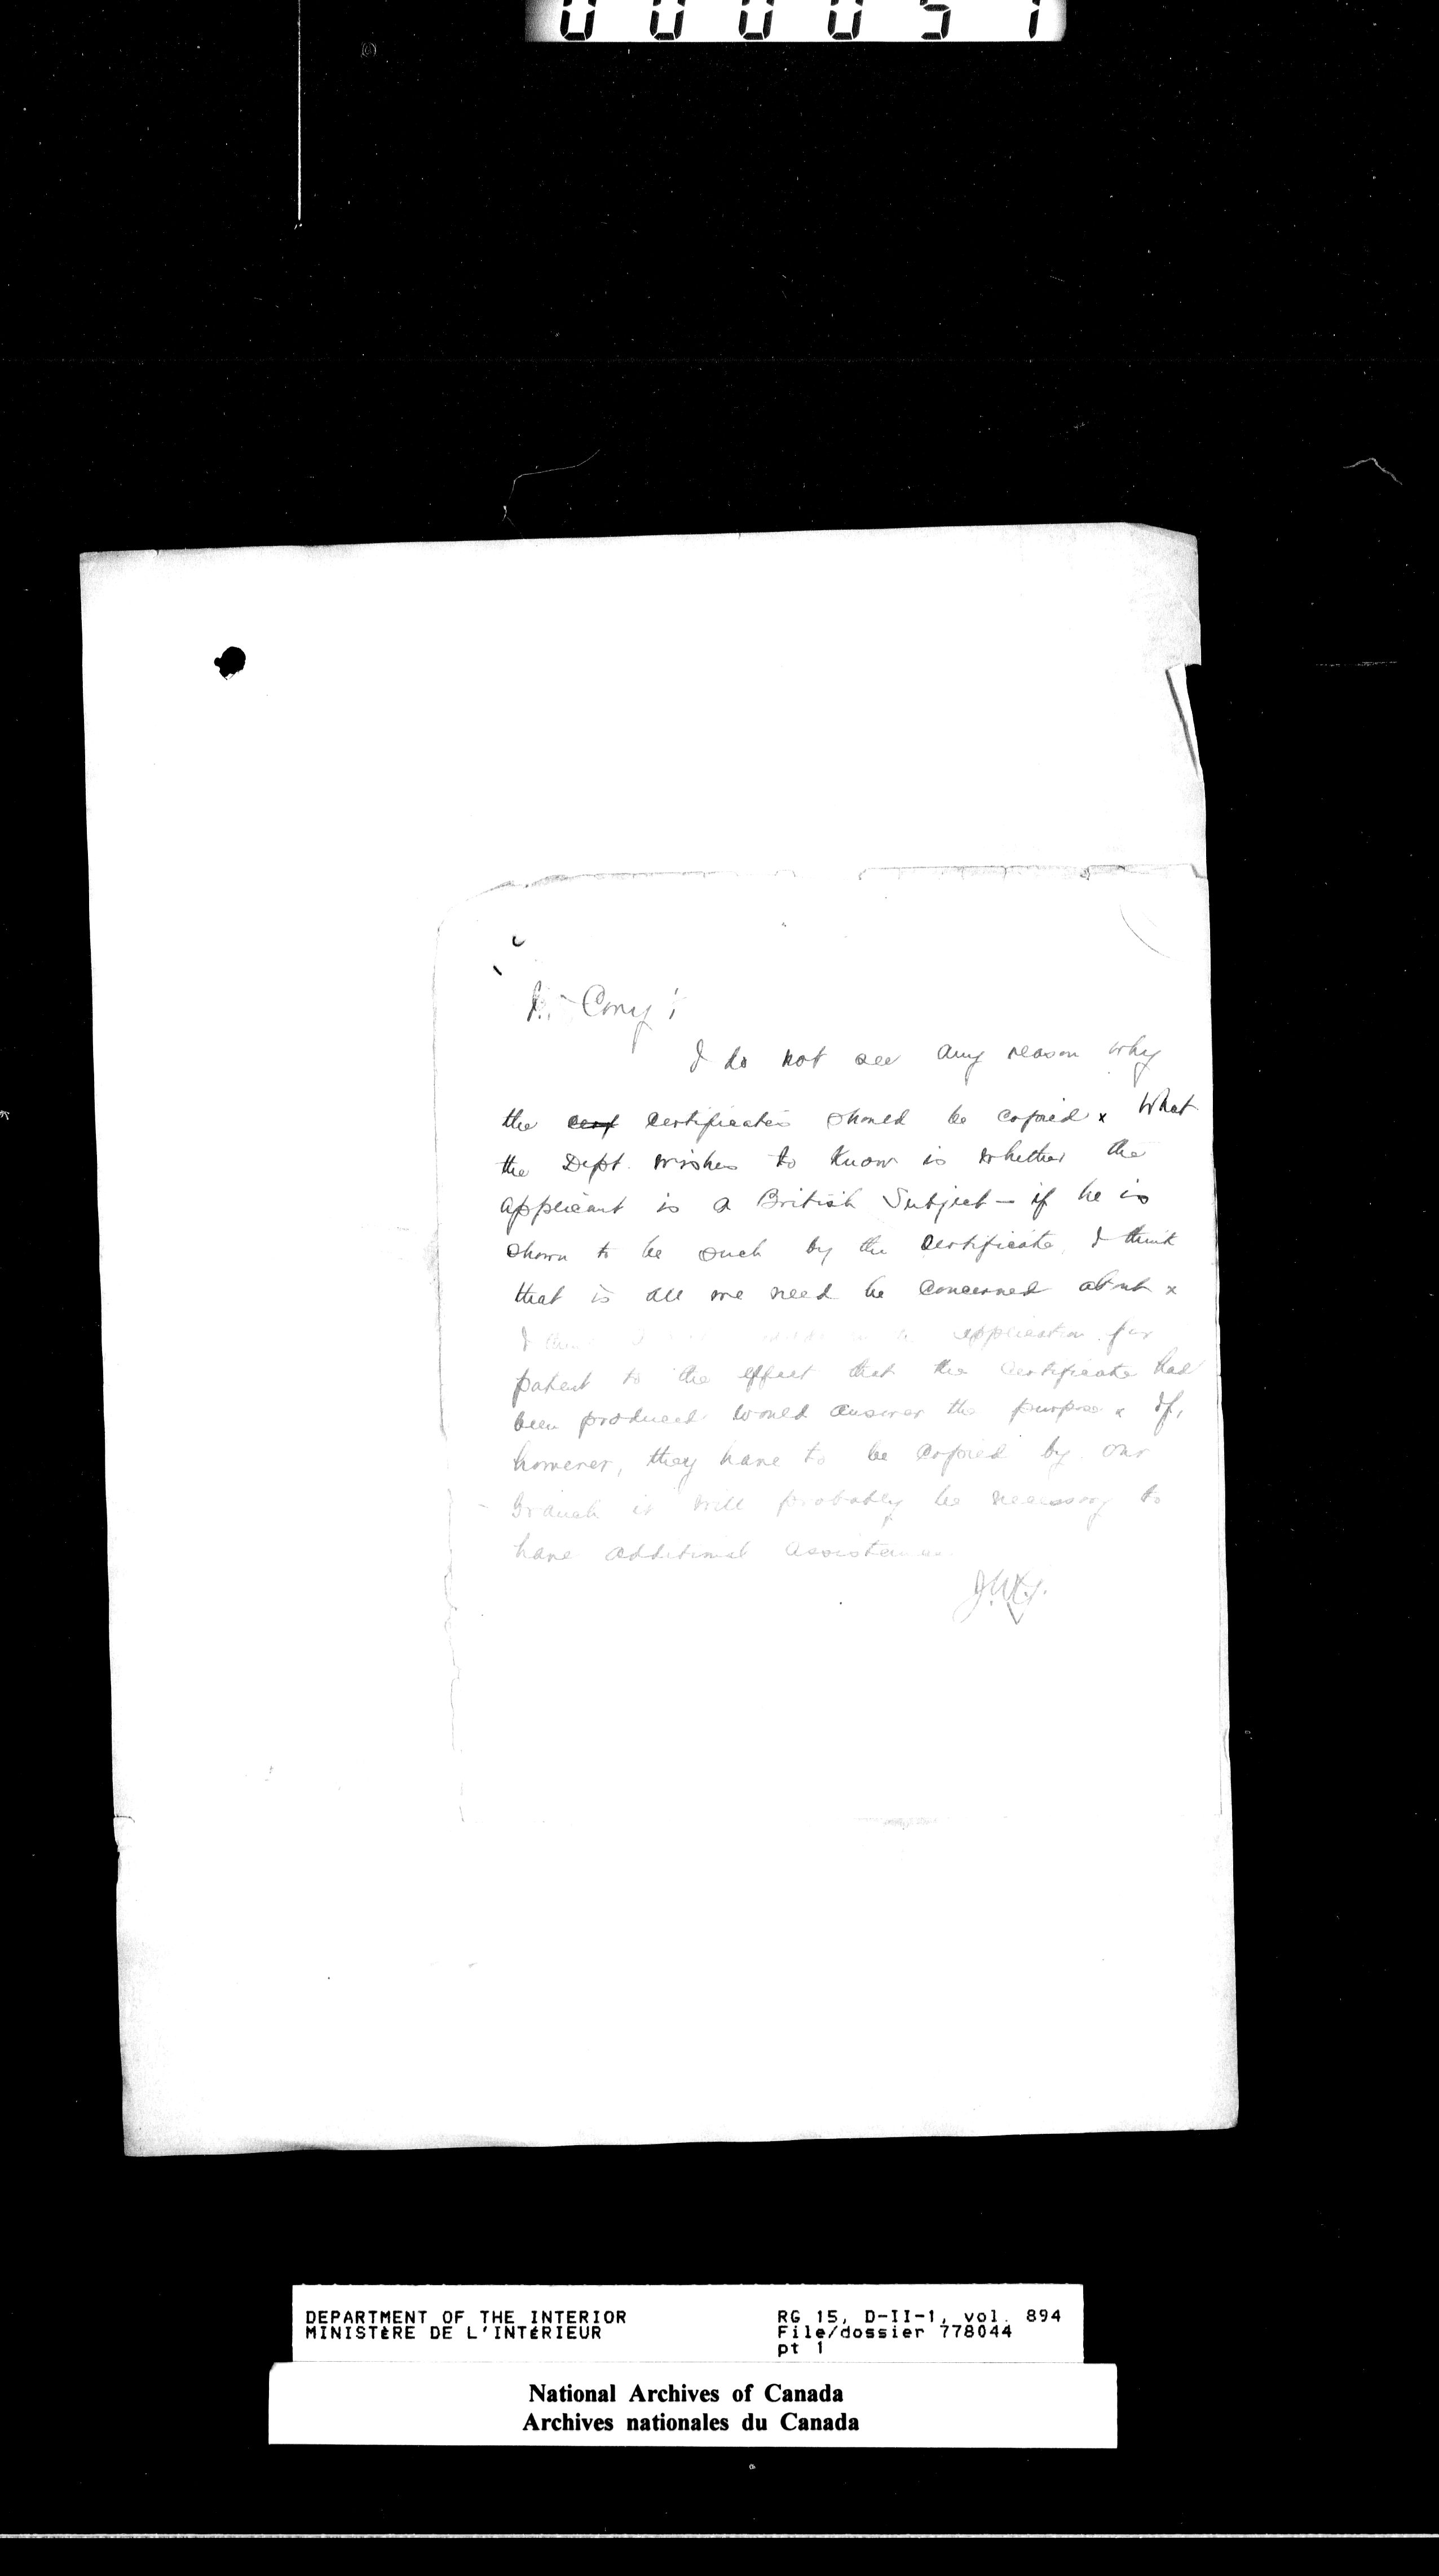 000051
Cory;
I do not see any reason why
the cert certificates should be copied x What
the Dept. wishes to know is whether the
applicant is a British Subject – if he is
shown to be such by the certificate, I think
that is all we need be concerned about x
I application for
patent to the effect that the certificate had
been produced would answer the purpose x If,
however, they have to be copied by our
Branch it will probably be necessary to
have additional assistance
DEPARTMENT OF THE INTERIOR
MINISTÈRE DE L'INTÉRIEUR
RG 15, D-II-1, vol. 894
File/dossier 778044
pt 1
National Archives of Canada
Archives nationales du Canada